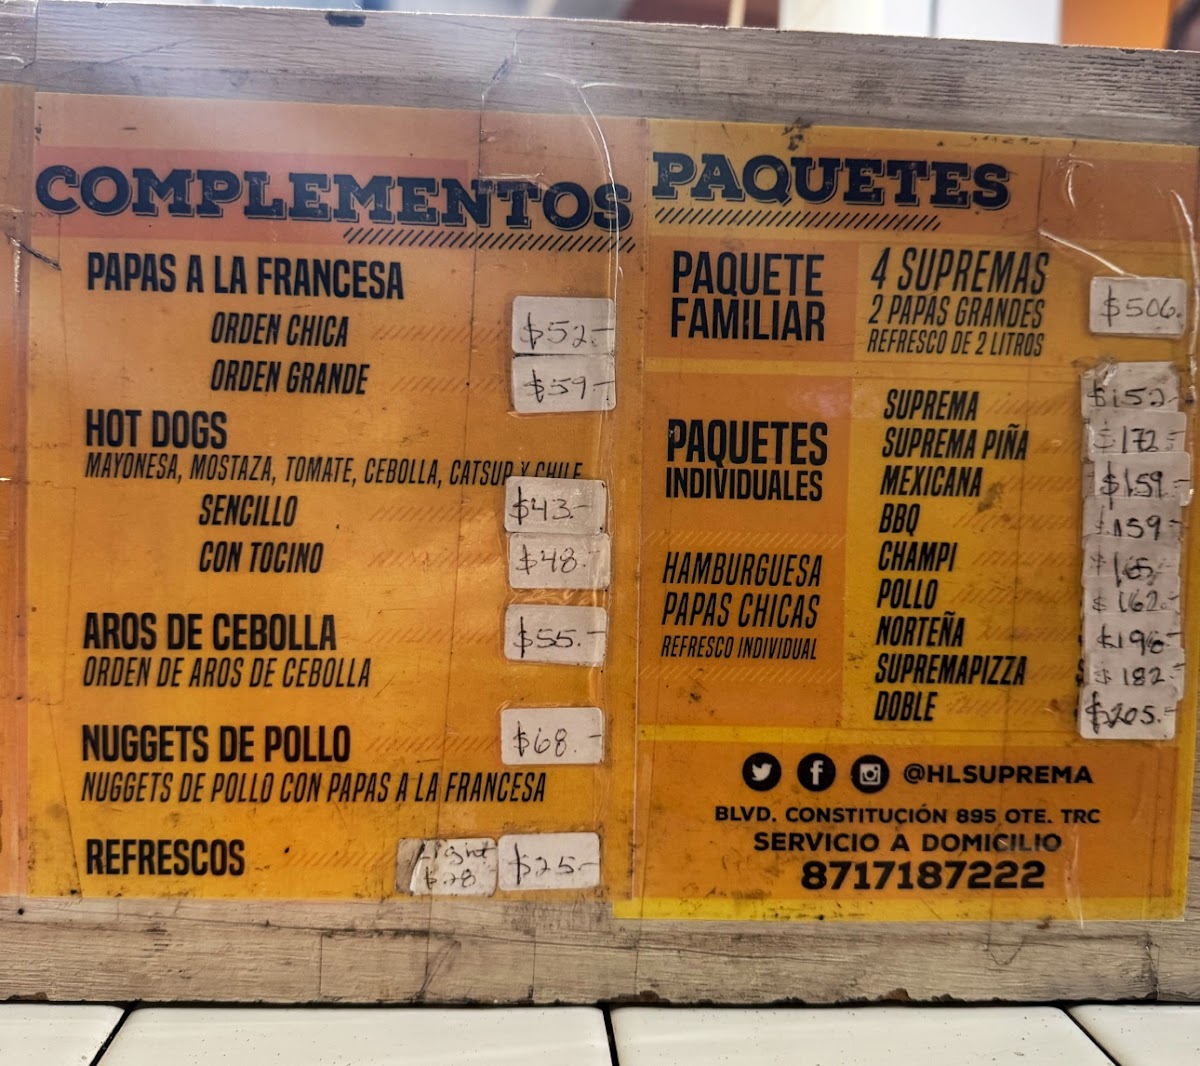 COMPLEMENTOS
PAPAS A LA FRANCESA
ORDEN CHICA $52.-
ORDEN GRANDE $59.-
HOT DOGS
MAYONESA, MOSTAZA, TOMATE, CEBOLLA, CATSUP Y CHILE
SENCILLO $43.-
CON TOCINO $48.-
AROS DE CEBOLLA $55.-
ORDEN DE AROS DE CEBOLLA
NUGGETS DE POLLO $68.-
NUGGETS DE POLLO CON PAPAS A LA FRANCESA
REFRESCOS Light $28 $25.-
PAQUETES
PAQUETE
FAMILIAR
4 SUPREMAS
2 PAPAS GRANDES
REFRESCO DE 2 LITROS
$506.
PAQUETES
INDIVIDUALES
HAMBURGUESA
PAPAS CHICAS
REFRESCO INDIVIDUAL
SUPREMA $152.-
SUPREMA PIÑA $172.-
MEXICANA $159.-
BBQ $159.-
CHAMPI
POLLO $162.-
NORTEÑA
SUPREMAPIZZA $182.-
DOBLE $205.-
@HLSUPREMA
BLVD. CONSTITUCIÓN 895 OTE. TRC
SERVICIO A DOMICILIO
8717187222